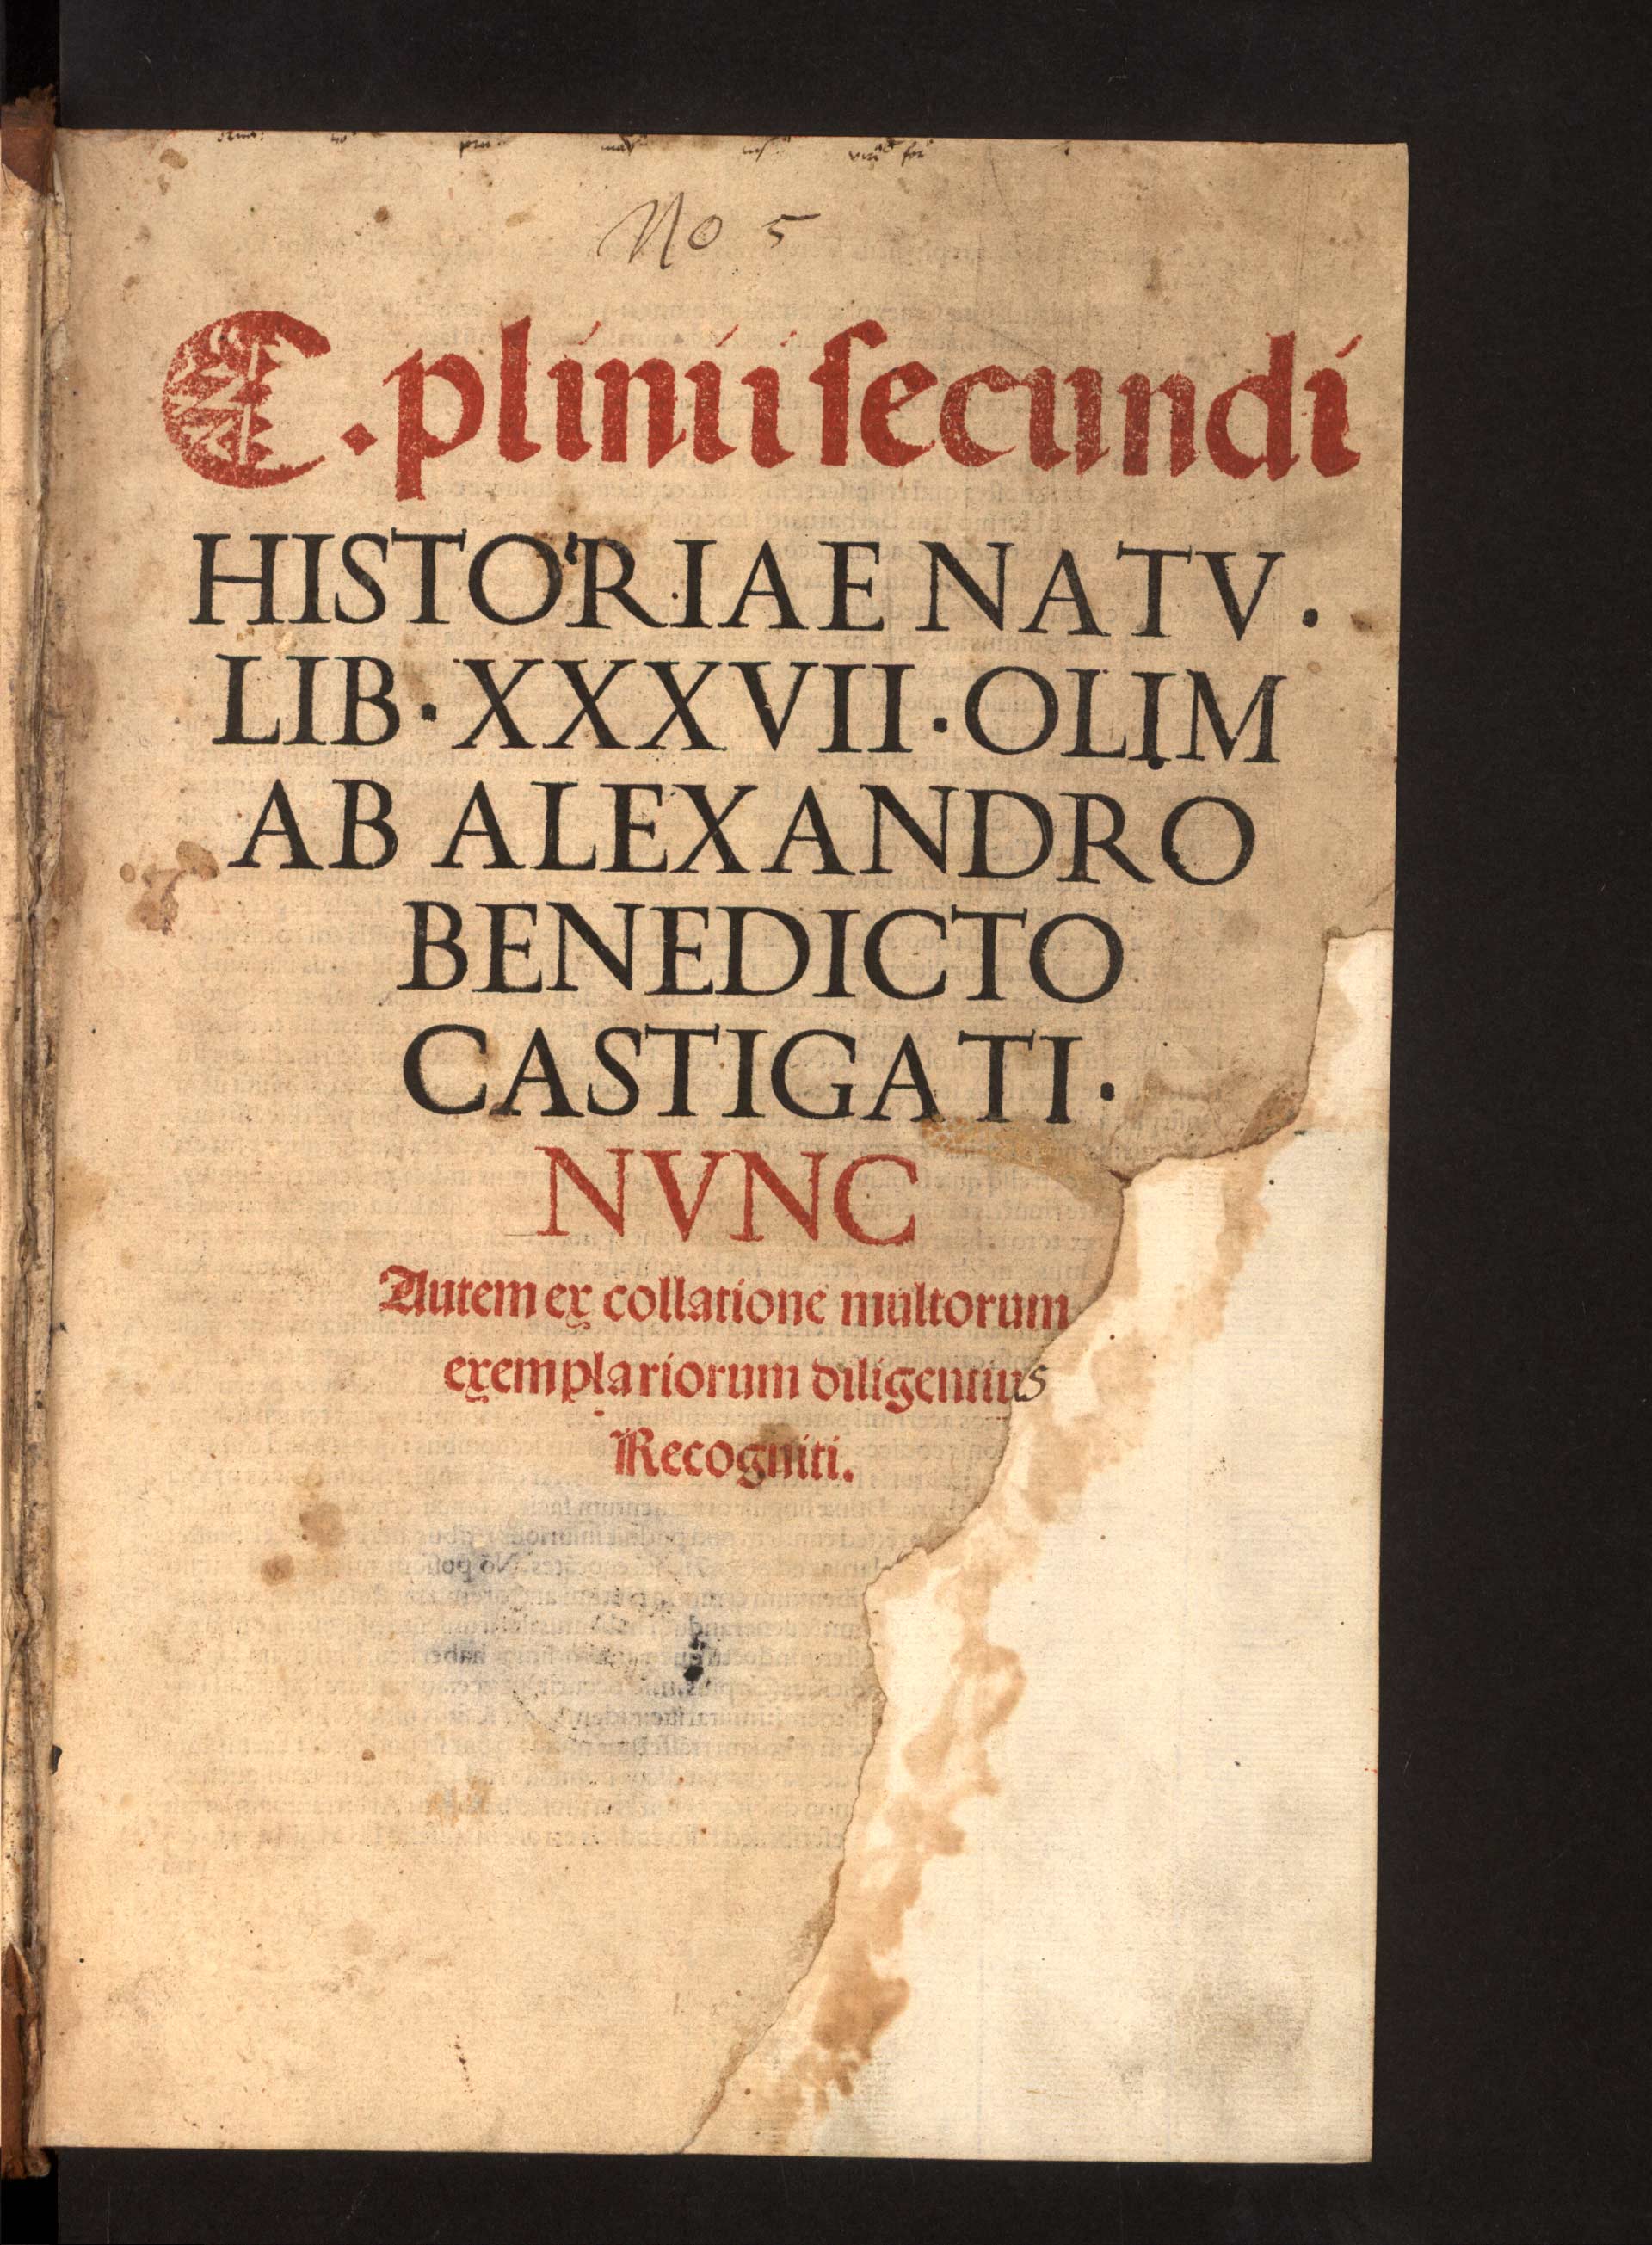 No 5
C. plinii secundi
HISTORIAE NATV.
LIB · XXXVII · OLIM
AB ALEXANDRO
BENEDICTO
CASTIGATI ·
NVNC
Autem ex collatione multorum
exemplariorum diligentius
Recogniti.